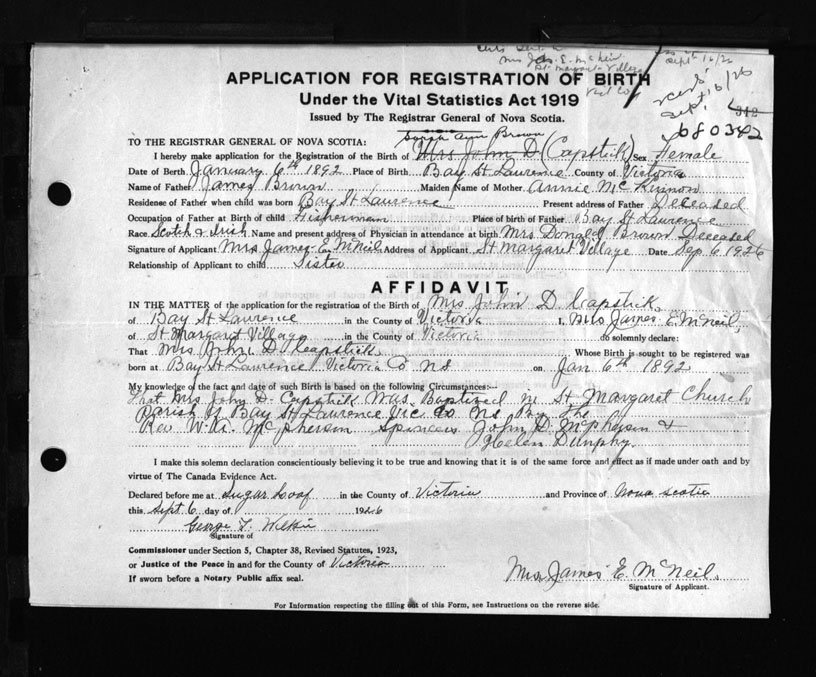 Mrs Jas. E. McNeil
St. Margaret Village
Sept 16/26
Sept. 16/26
342
680342
APPLICATION FOR REGISTRATION OF BIRTH
Under the Vital Statistics Act 1919
Issued by The Registrar General of Nova Scotia.
TO THE REGISTRAR GENERAL OF NOVA SCOTIA:
Sarah Ann Brown
I hereby make application for the Registration of the Birth of Mrs John D (Capstick) Sex Female
Date of Birth January 6th 1892 Place of Birth Bay St Lawrence County of Victoria
Name of Father James Brown Maiden Name of Mother Annie McKinnon
Residence of Father when child was born Bay St Lawrence Present address of Father Deceased
Occupation of Father at Birth of child Fisherman Place of birth of Father Bay St Lawrence
Race Scotch & Irish Name and present address of Physician in attendance at birth Mrs Donald Brown Deceased
Signature of Applicant Mrs James E. McNeil Address of Applicant St Margaret Village Date Sep 6 1926
Relationship of Applicant to child Sister
AFFIDAVIT
IN THE MATTER of the application for the registration of the Birth of Mrs John D Capstick
of Bay St Lawrence in the County of Victoria I, Mrs James E McNeil,
of St Margaret Village in the County of Victoria do solemnly declare:
That Mrs John D Capstick Whose Birth is sought to be registered was
born at Bay St Lawrence Victoria Co NS on Jan 6th 1892
My knowledge of the fact and date of such Birth is based on the following Circumstances:—
that Mrs John D. Capstick Was Baptized in St Margaret Church
Parish of Bay St Lawrence Vic Co NS By the
Rev W. McPherson John D. McPherson &
Helen Dunphy.
I make this solemn declaration conscientiously believing it to be true and knowing that it is of the same force and effect as if made under oath and by
virtue of The Canada Evidence Act.
Declared before me at Sugar Loaf in the County of Victoria and Province of Nova Scotia
this Sept 6 day of 1926
George T. Wilkie
Signature of
Commissioner under Section 5, Chapter 38, Revised Statutes, 1923,
or Justice of the Peace in and for the County of Victoria
If sworn before a Notary Public affix seal.
Mrs James E. McNeil.
Signature of Applicant.
For Information respecting the filling out of this Form, see Instructions on the reverse side.